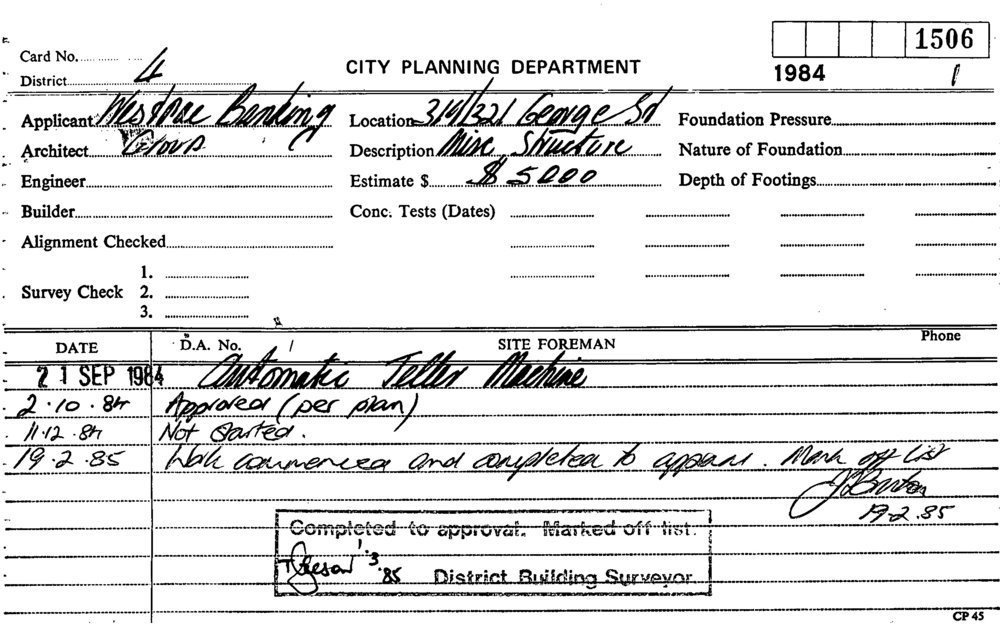 1506
Card No.
District 4
CITY PLANNING DEPARTMENT
1984 1
Applicant Westpac Banking Location 319/321 George St Foundation Pressure
Architect Group Description Misc Structure Nature of Foundation
Engineer Estimate $ $ 5000 Depth of Footings
Builder Conc. Tests (Dates)
Alignment Checked
1.
Survey Check 2.
3.
DATE D.A. No. / SITE FOREMAN Phone
21 SEP 1984 Automatic Teller Machine
2.10.84 Approved (per plan)
11.12.84 Not Started.
19.2.85 Work commenced and completed to approval. Mark off list
19.2.85
Completed to approval. Marked off list.
1.3.85 District Building Surveyor
CP 45